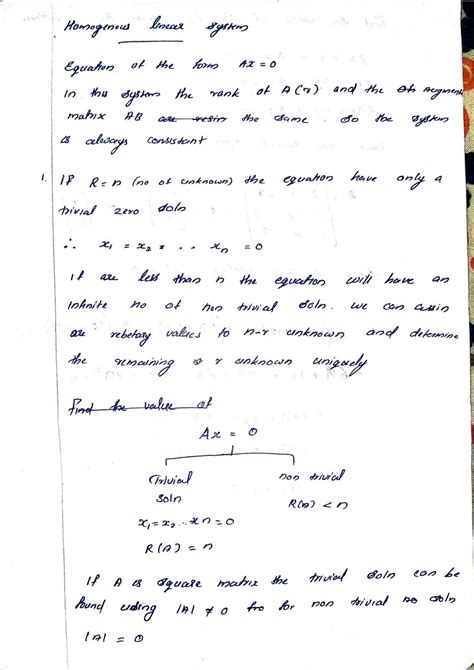 Homogenous linear system
Equation of the form Ax = 0
In this system the rank of A (r) and the Augment
matrix AB are the same. So the system
is always consistant
1. If R = n (no of unknown) the equation have only a
trivial zero soln
∴ x₁ = x₂ = . . xₙ = 0
if are less than n the equation will have an
infinite no of non trivial soln. we can assin
are rebetary values to n-r unknown and determine
the remaining r unknown uniquely
Find the value of
Ax = 0
trivial non trivial
soln R(A) < n
x₁ = x₂ ... xn = 0
R(A) = n
If A is square matrix the trivial soln can be
found using |A| ≠ 0 fro for non trivial no soln
|A| = 0